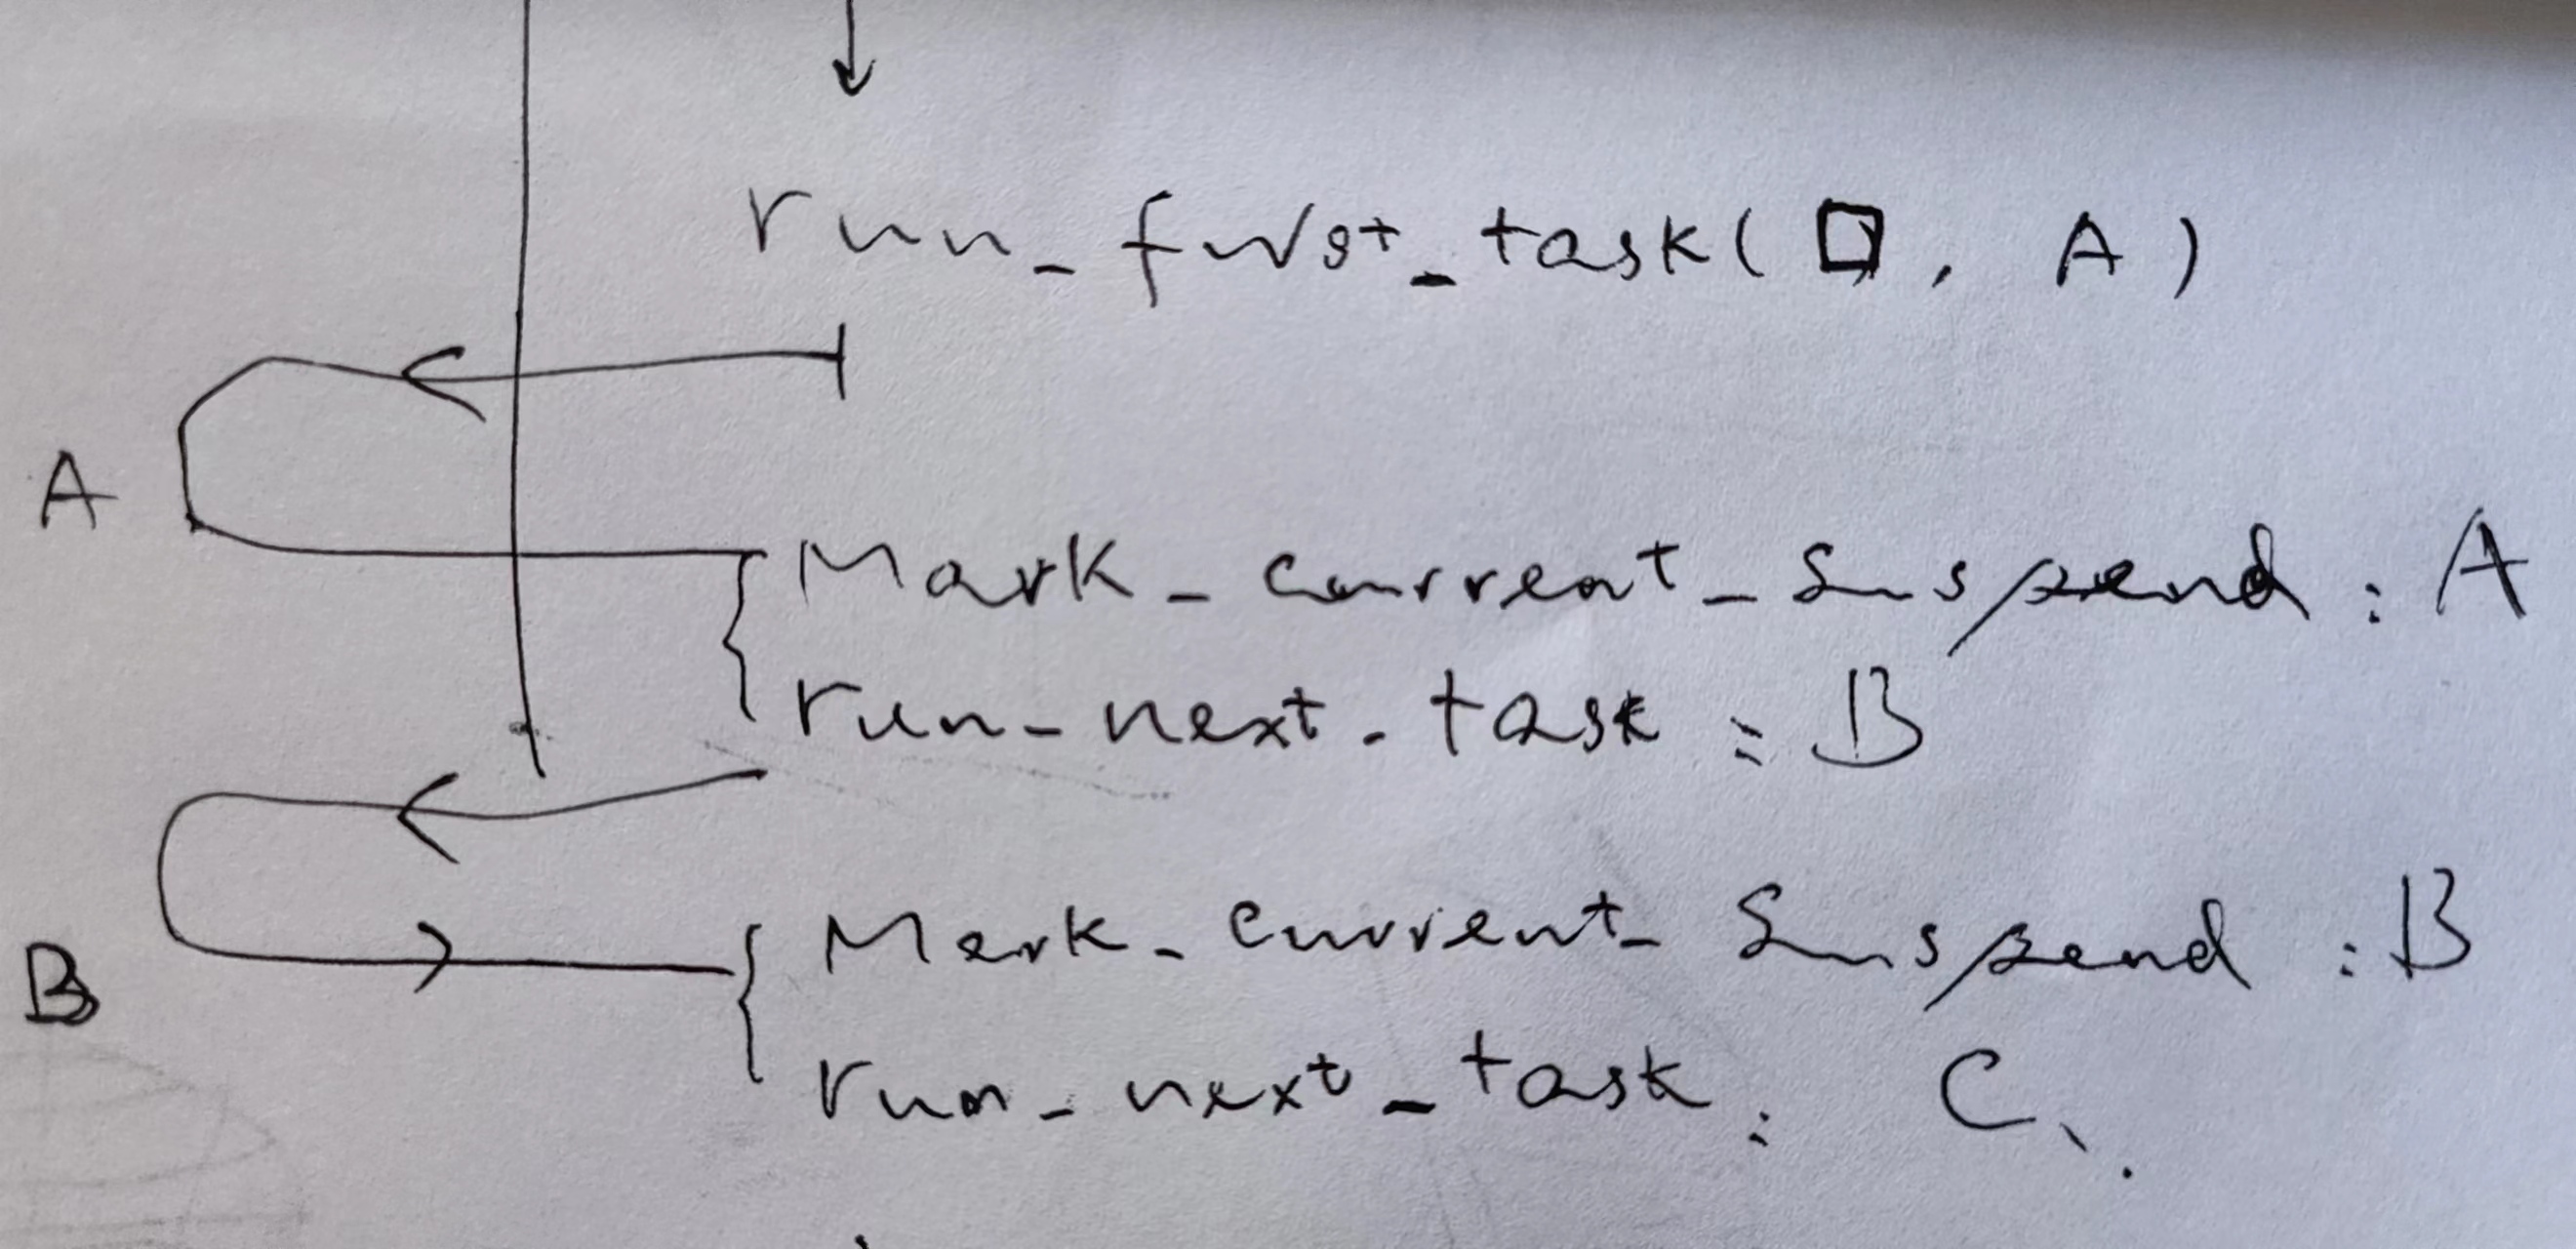 run_first_task( □, A )
A
Mark_current_suspend : A
run_next_task : B
B
Mark_current_suspend : B
run_next_task : C